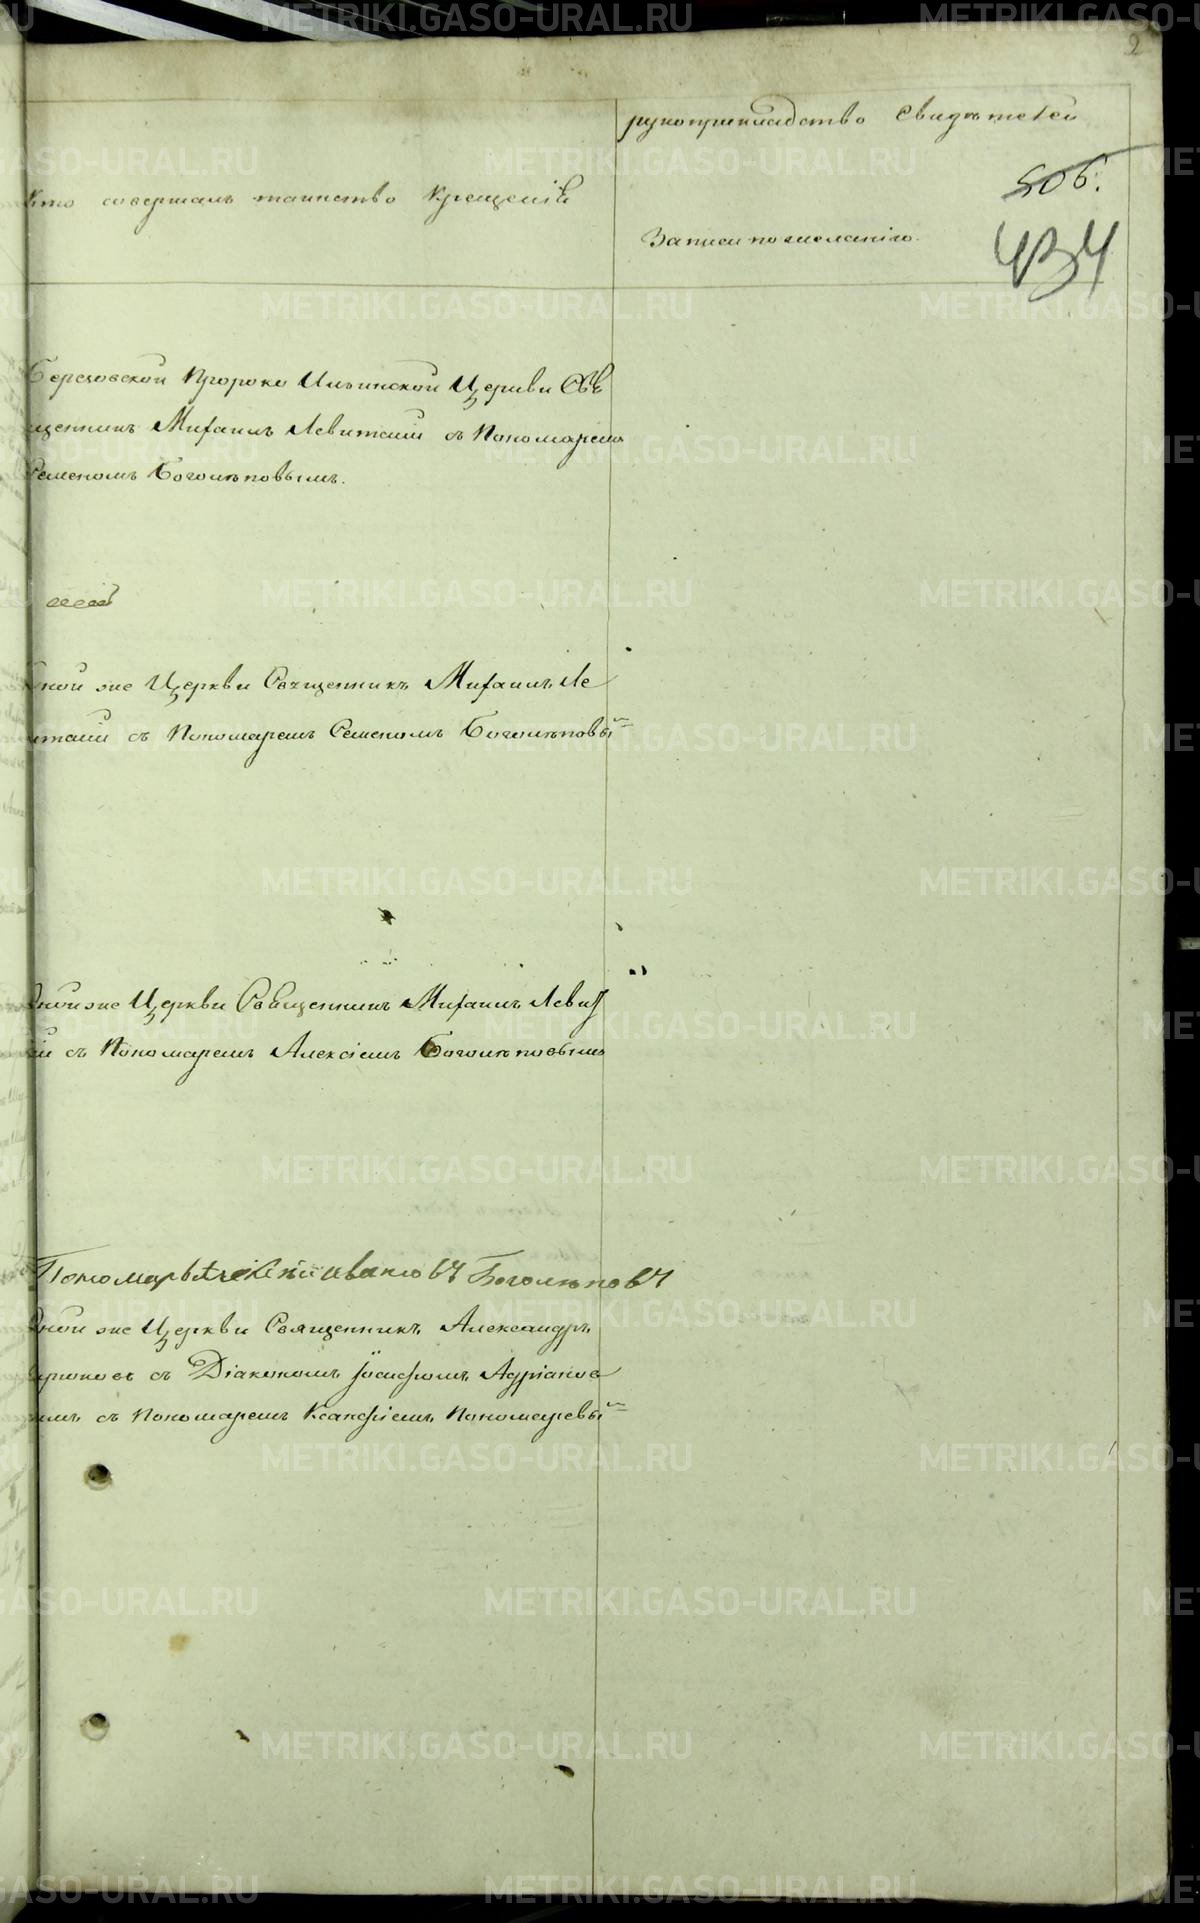 2
рукоприкладство свидѣтелей
Кто совершалъ таинство крещенія
506.
Записи по желанію.
434
Березовской Пророко Ильинской Церкви Свя
щенникъ Михаилъ Левитскій съ Пономаремъ
Семеномъ Боголѣповымъ.
Оной же Церкви Священникъ Михаилъ Ле
витскій съ Пономаремъ Семеномъ Боголѣповы
Оной же Церкви Священникъ Михаилъ Левит
съ Пономаремъ Алексіемъ Боголѣповымъ
Пономарь Алексѣй Ивановъ Боголѣповъ
Оной же Церкви Священникъ Александръ
съ Діакономъ Іосифомъ Адріанов
съ Пономаремъ Ксанфіемъ Пономаревы
METRIKI.GASO-URAL.RU